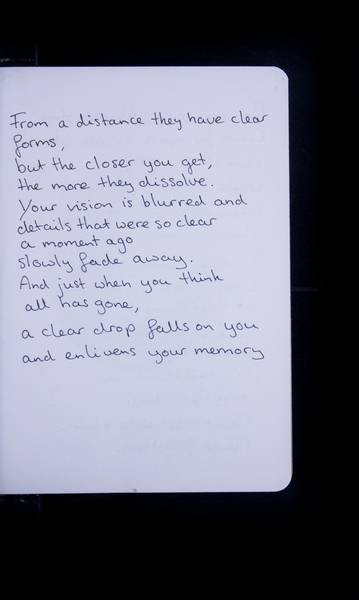 From a distance they have clear
forms,
but the closer you get,
the more they dissolve.
Your vision is blurred and
details that were so clear
a moment ago
slowly fade away.
And just when you think
all has gone,
a clear drop falls on you
and enlivens your memory